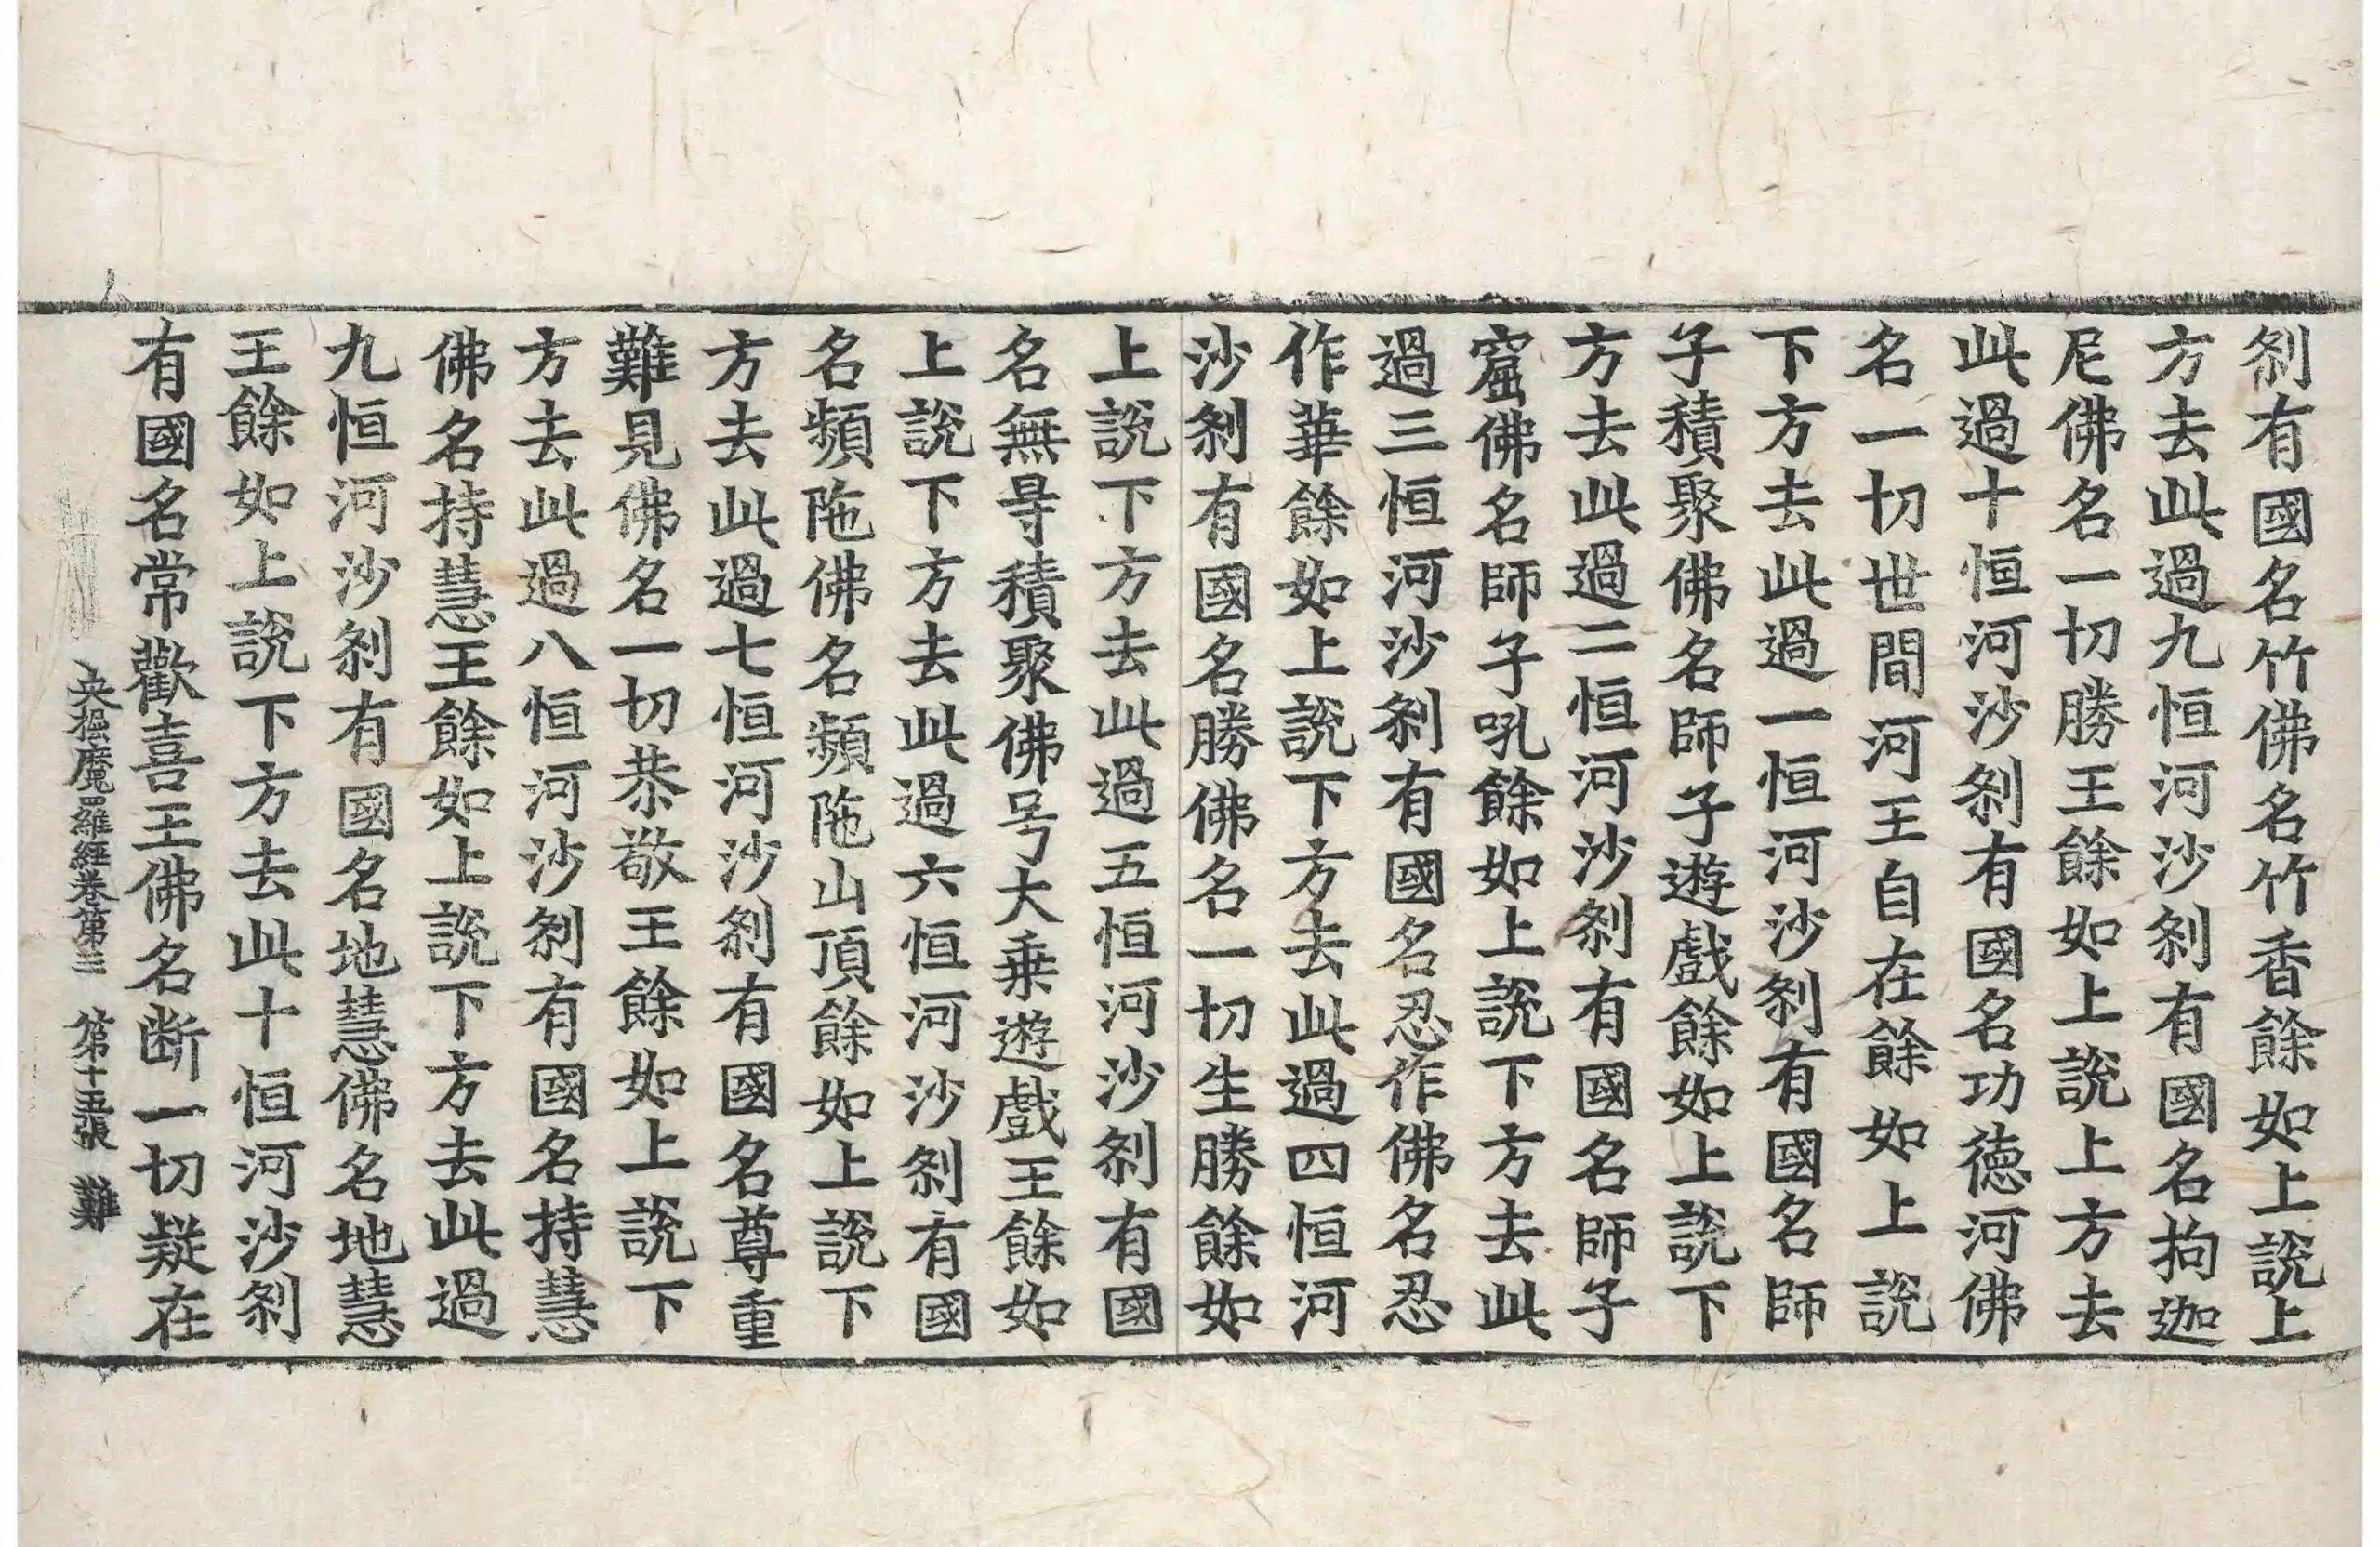 刹有國名竹佛名竹香餘如上說上
方去此過九恒河沙刹有國名拘迦
尼佛名一切勝王餘如上說上方去
此過十恒河沙刹有國名功徳河佛
名一切世間河王自在餘如上說
下方去此過一恒河沙刹有國名師
子積聚佛名師子遊戲餘如上說下
方去此過二恒河沙刹有國名師子
窟佛名師子吼餘如上說下方去此
過三恒河沙刹有國名忍作佛名忍
作華餘如上說下方去此過四恒河
沙刹有國名勝佛名一切生勝餘如
上說下方去此過五恒河沙刹有國
名無㝵積聚佛号大乗遊戲王餘如
上說下方去此過六恒河沙刹有國
名頻陁佛名頻陁山頂餘如上說下
方去此過七恒河沙刹有國名尊重
難見佛名一切恭敬王餘如上說下
方去此過八恒河沙刹有國名持慧
佛名持慧王餘如上說下方去此過
九恒河沙刹有國名地慧佛名地慧
王餘如上說下方去此十恒河沙刹
有國名常歡喜王佛名断一切疑在
央掘魔羅經卷第三 第十五張 難